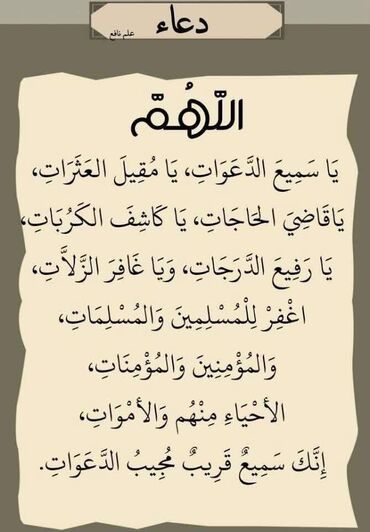 دعاء
علم نافع
اللَّهُمَّ
يَا سَمِيعَ الدَّعَوَاتِ، يَا مُقِيلَ العَثَرَاتِ،
يَاقَاضِيَ الحَاجَاتِ، يَا كَاشِفَ الكَرُبَاتِ،
يَا رَفِيعَ الدَّرَجَاتِ، وَيَا غَافِرَ الزَّلاَّتِ،
اغْفِرْ لِلْمُسْلِمِينَ وَالمُسْلِمَاتِ،
وَالمُؤْمِنِينَ وَالمُؤْمِنَاتِ،
الأَحْيَاءِ مِنْهُم وَالأَمْوَاتِ،
إِنَّكَ سَمِيعٌ قَرِيبٌ مُجِيبُ الدَّعَوَاتِ.